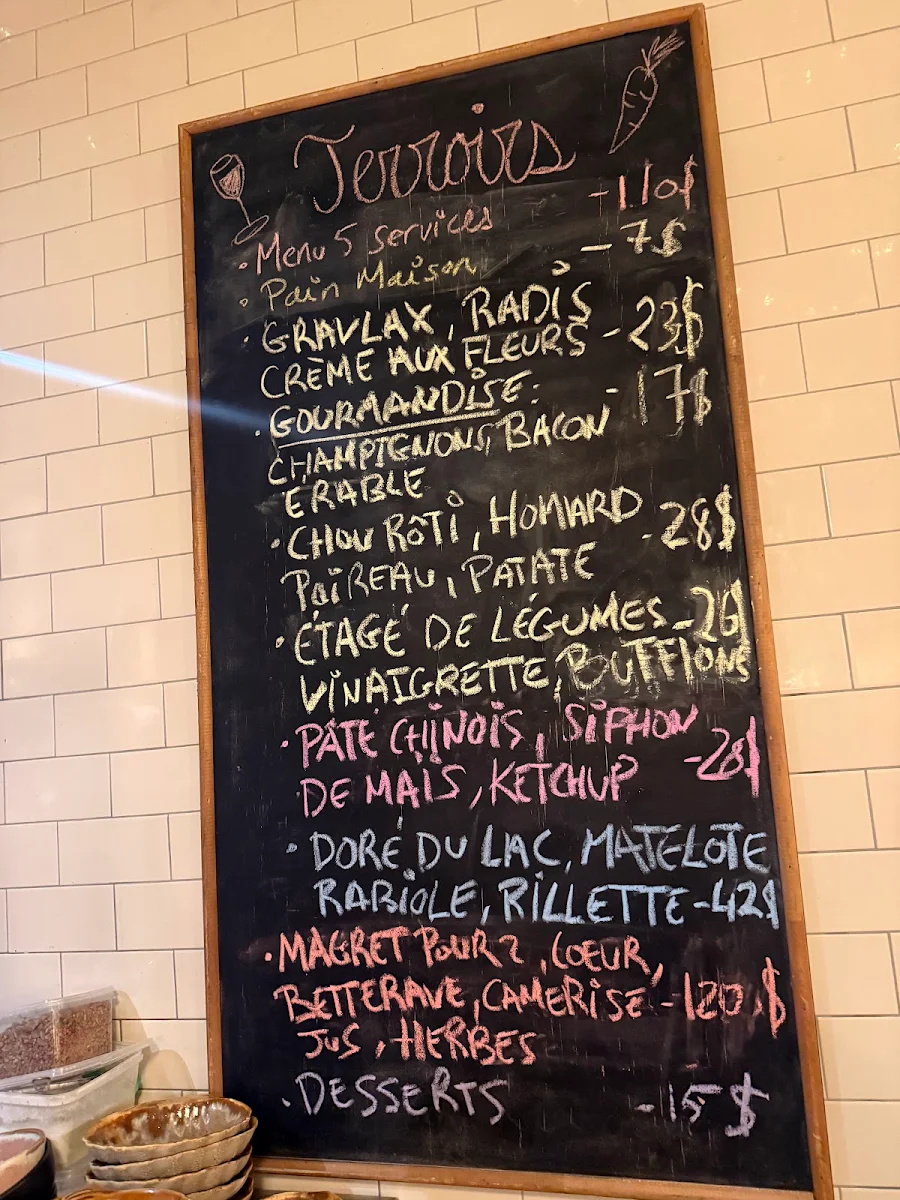 Terroirs
• Menu 5 services - 110$
• Pain Maison - 7$
• GRAVLAX, RADIS
CRÈME AUX FLEURS - 23$
• GOURMANDISE: - 17$
CHAMPIGNONS, BACON
ÉRABLE
• CHOU RÔTI, HOMARD - 28$
POIREAU, PATATE
• ÉTAGÉ DE LÉGUMES - 26$
VINAIGRETTE,
• PÂTÉ CHINOIS, SIPHON - 28$
DE MAÏS, KETCHUP
• DORÉ DU LAC, MATELOTE
RABIOLE, RILLETTE - 42$
• MAGRET POUR 2, COEUR,
BETTERAVE, CAMERISE - 120$
JUS, HERBES
• DESSERTS - 15$